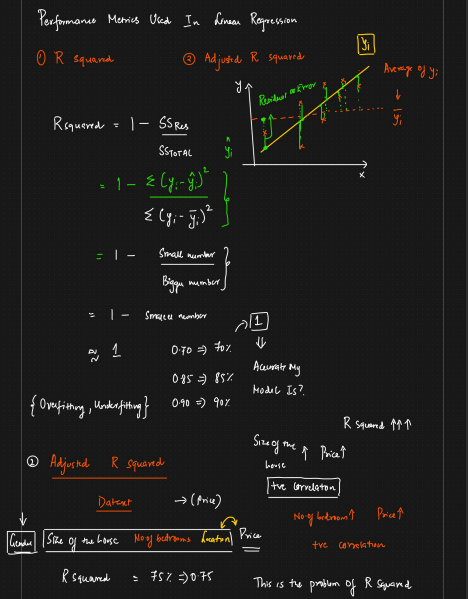 Performance Metrics Used In Linear Regression
① R squared
② Adjusted R squared
yi
Average of yi
y
Residual or Error
ȳi
ŷi
x
R squared = 1 - SSRes / SSTOTAL
= 1 - Σ(yi - ŷi)² / Σ(yi - ȳi)²
= 1 - Small number / Bigger number
= 1 - Smaller number
≈ 1
0.70 ⇒ 70%
0.85 ⇒ 85%
0.90 ⇒ 90%
1
Accurate My
Model Is?
{Overfitting, Underfitting}
R squared ↑↑↑
② Adjusted R squared
Size of the house ↑ Price ↑
+ve correlation
Dataset → (Price)
No. of bedroom ↑ Price ↑
+ve correlation
Gender
Size of the house No. of bedrooms Location Price
R squared = 75% ⇒ 0.75
This is the problem of R squared